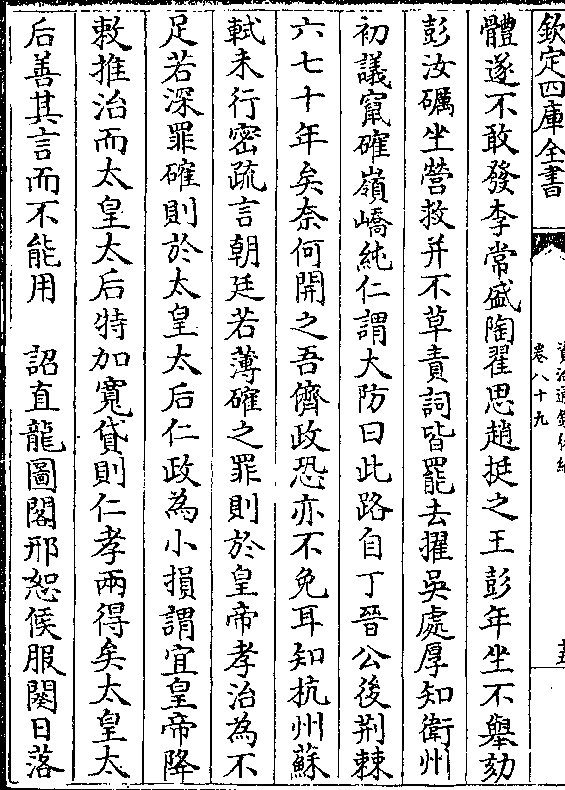 欽定四庫全書
卷八十九
體遂不敢發李常盛陶翟思趙挺之王彭年坐不舉劾
彭汝礪坐營救并不草責詞皆罷去擢吳處厚知衛州
初議竄確嶺嶠純仁謂大防曰此路自丁晉公後荆棘
六七十年矣奈何開之吾儕政恐亦不免耳知杭州蘇
軾未行密疏言朝廷若薄確之罪則於皇帝孝治為不
足若深罪確則於太皇太后仁政為小損謂宜皇帝降
敕推治而太皇太后特加寬貸則仁孝兩得矣太皇太
后善其言而不能用　詔直龍圖閣邢恕候服闋日落